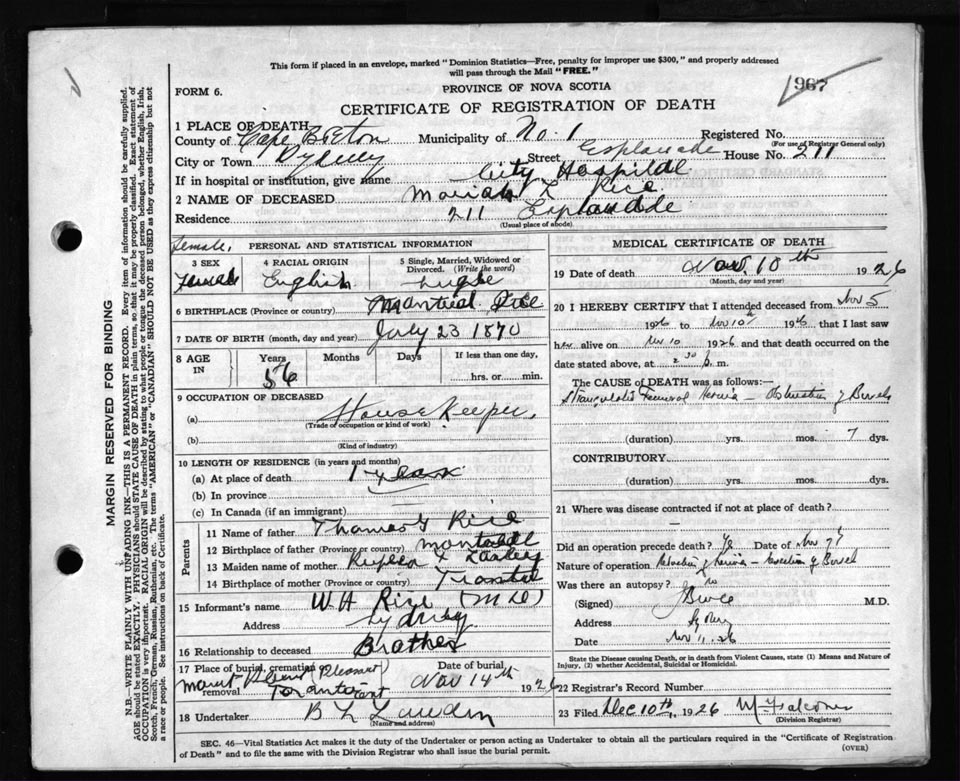 This form if placed in an envelope, marked "Dominion Statistics—Free, penalty for improper use $300," and properly addressed
will pass through the Mail "FREE."
967
FORM 6.
PROVINCE OF NOVA SCOTIA
CERTIFICATE OF REGISTRATION OF DEATH
1 PLACE OF DEATH
County of Cape Breton Municipality of No. 1 Registered No.
(For use of Registrar General only)
City or Town Sydney Street Esplanade House No. 211
If in hospital or institution, give name City Hospital
2 NAME OF DECEASED Mariah L Rice
Residence 211 Esplanade
(Usual place of abode)
Female.
PERSONAL AND STATISTICAL INFORMATION
3 SEX
Female
4 RACIAL ORIGIN
English
5 Single, Married, Widowed or
Divorced. (Write the word)
6 BIRTHPLACE (Province or country) Montreal
7 DATE OF BIRTH (month, day and year) July 23 1870
8 AGE
IN
Years
56
Months
Days
If less than one day,
hrs. or min.
9 OCCUPATION OF DECEASED
(a) House Keeper.
(Trade of occupation or kind of work)
(b)
(Kind of industry)
10 LENGTH OF RESIDENCE (in years and months)
(a) At place of death 1 years
(b) In province
(c) In Canada (if an immigrant)
Parents
11 Name of father Thomas G Rice
12 Birthplace of father (Province or country)
13 Maiden name of mother
14 Birthplace of mother (Province or country)
15 Informant's name W A Rice
Address Sydney
16 Relationship to deceased Brother
17 Place of burial, cremation or
removal Mount Pleasant
Toronto Ont
Date of burial
Nov 14th 1926
18 Undertaker B L
(Name and address)
MEDICAL CERTIFICATE OF DEATH
19 Date of death Nov. 10th 1926
(Month, day and year)
20 I HEREBY CERTIFY that I attended deceased from Nov 5
1926 to Nov 10th 1926 that I last saw
her alive on Nov 10 1926 and that death occurred on the
date stated above, at 2 30 p. m.
The CAUSE OF DEATH was as follows:—
Strangulated Femoral Hernia – Obstruction of Bowels
(duration) yrs. mos. 7 dys.
CONTRIBUTORY.
(duration) yrs. mos. dys.
21 Where was disease contracted if not at place of death?
–
Did an operation precede death? Date of Nov 7
Nature of operation Hernia – of Bowel
Was there an autopsy? no
(Signed) M.D.
Address Sydney
Date Nov 11. 26
State the Disease causing Death, or in death from Violent Causes, state (1) Means and Nature of
Injury, (2) whether Accidental, Suicidal or Homicidal.
22 Registrar's Record Number
23 Filed Dec 10th, 1926
(Division Registrar)
SEC. 46—Vital Statistics Act makes it the duty of the Undertaker or person acting as Undertaker to obtain all the particulars required in the "Certificate of Registration
of Death" and to file the same with the Division Registrar who shall issue the burial permit.
(OVER)
MARGIN RESERVED FOR BINDING
N.B.—WRITE PLAINLY WITH UNFADING INK—THIS IS A PERMANENT RECORD. Every item of information should be carefully supplied.
AGE should be stated EXACTLY. PHYSICIANS should STATE CAUSE OF DEATH in plain terms, so that it may be properly classified. Exact statement of
OCCUPATION is very important. RACIAL ORIGIN will be described by stating to what people or tongue the deceased person belonged, whether English, Irish,
Scotch, French, German, Russian, Ruthenian, etc. The terms "AMERICAN" or "CANADIAN" SHOULD NOT BE USED as they express citizenship but not
a race or people. See instructions on back of Certificate.